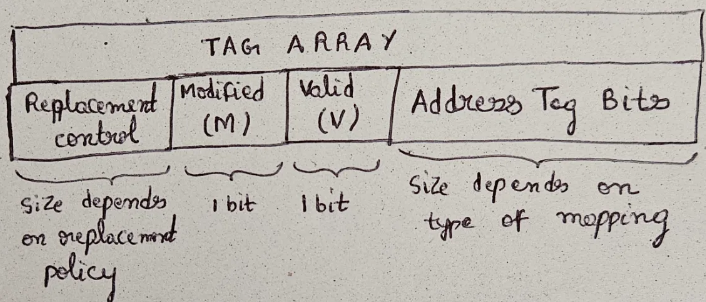 TAG ARRAY
Replacement control
Modified (M)
Valid (V)
Address Tag Bits
Size depends on replacement policy
1 bit
1 bit
Size depends on type of mapping